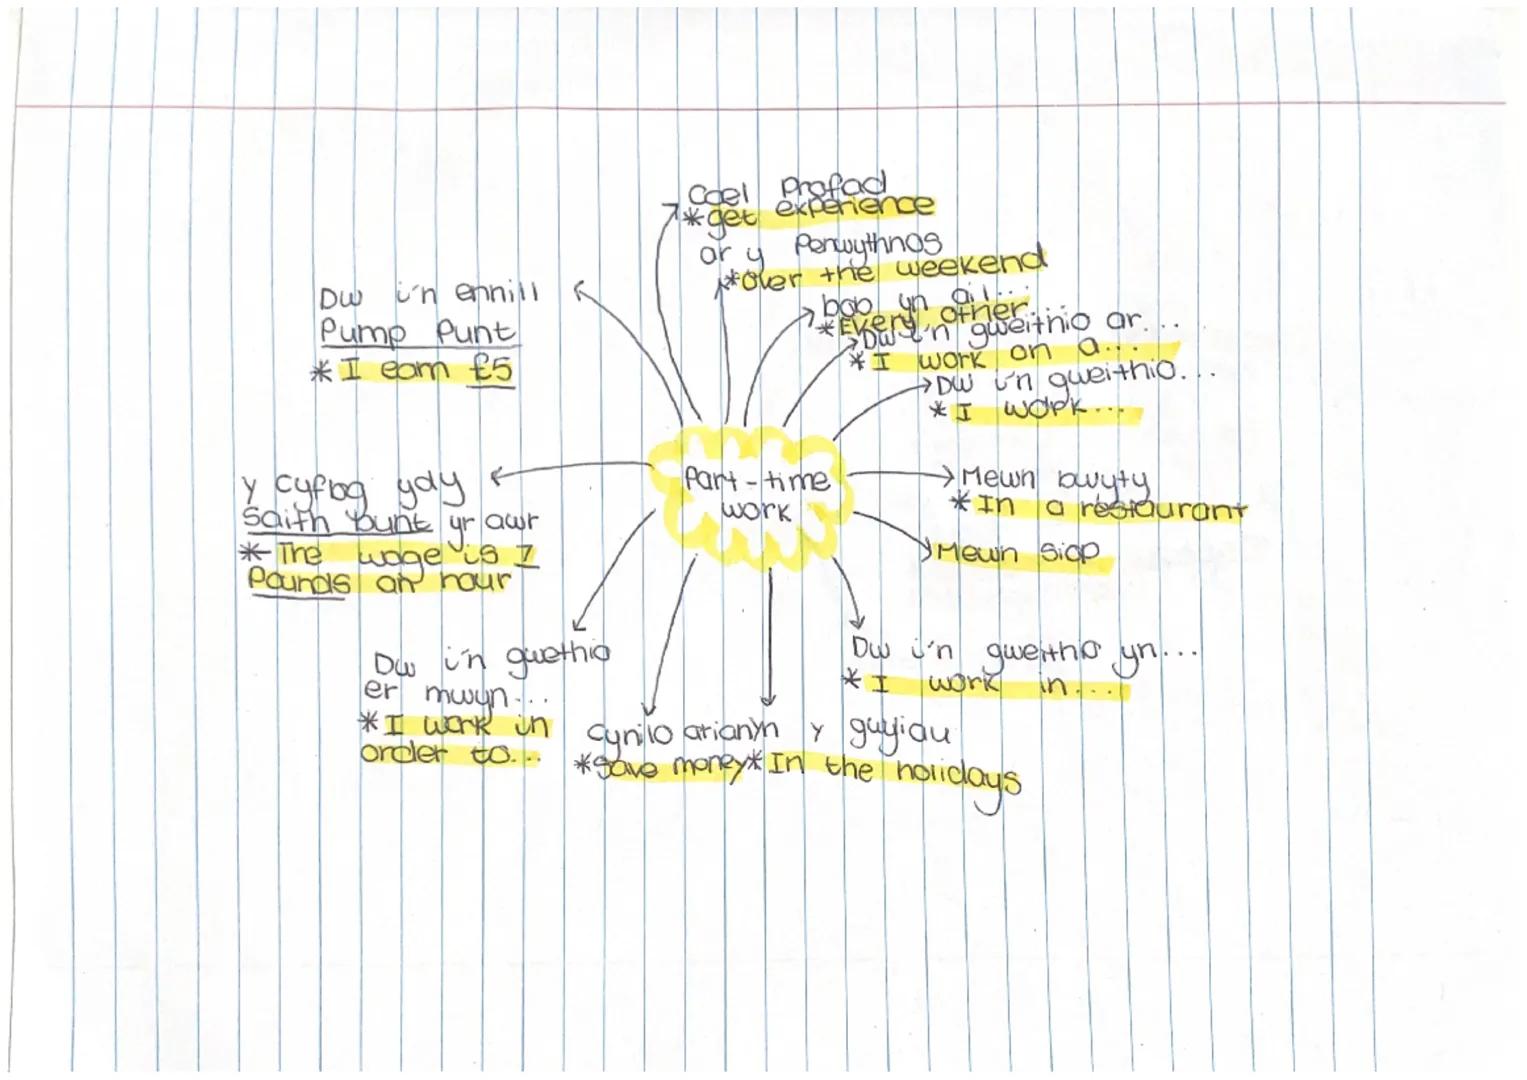 Cael Profad
*get experience
ar y Penwythnos
*Over the weekend
bob yn ail...
*Every other...
Dw i'n gweithio ar...
*I work on a...
Dw i'n gweithio...
*I work...
Dw i'n ennill
Pump Punt
*I earn £5
Part-time
work
Mewn bwyty
*In a restaurant
Mewn Siop
y cyflog ydy
Saith punt yr awr
*The wage is 7
Pounds an hour
Dw i'n gweithio yn...
*I work in...
Dw i'n gwethio
er mwyn...
*I work in
order to...
cynilo arian
*Save money
yn y gwyliau
*In the holidays